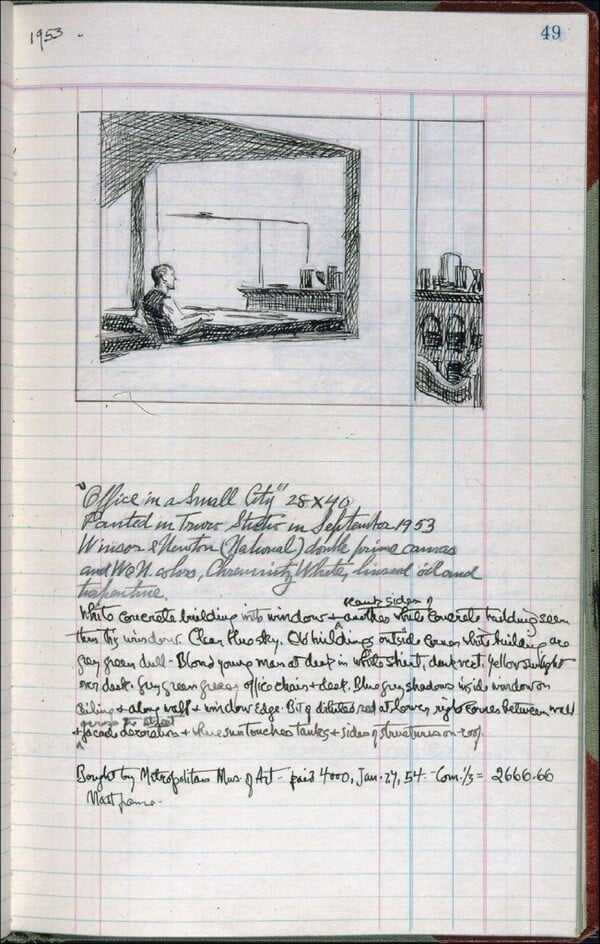 1953 -
49
"Office in a Small City" 28 x 40
Painted in Truro Studio in September 1953
Winsor & Newton (National) double prime canvas
and W&N. colors, Chremnitz White, linseed oil and
turpentine.
scant sides of
White concrete building with window + another white concrete building seen
thru this window. Clear blue sky. Old buildings outside corner white building are
grey green dull - Blond young man at desk in white shirt, dark vest. Yellow sunlight
over desk. Grey green office chair + desk. Blue grey shadows inside window on
ceiling + along wall + window edge. Bit of diluted red at lower right corner between wall
across the street
+ facade decoration + where sun touches tanks + sides of structures on roof.
Bought by Metropolitan Mus. of Art - paid 4000, Jan. 27, 54 - Com. 1/3 = 2666.66